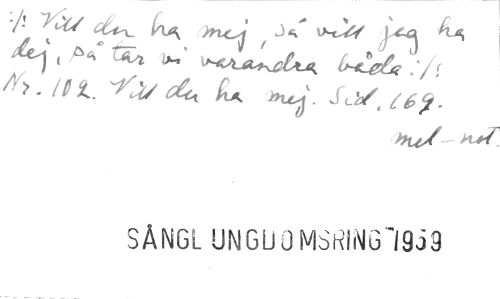 :/: Vill du ha mej, så vill jag ha
dej, så tar vi varandra båda :/:
Nr. 102. Vill du ha mej. Sid. 169.
mel-not.
SÅNGL UNGDOMSRING 1959